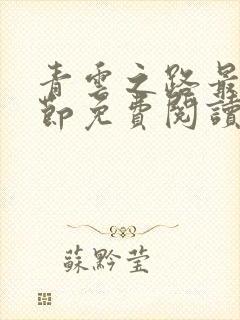 青雲之路最
節免費閱讀
蘇黔莹